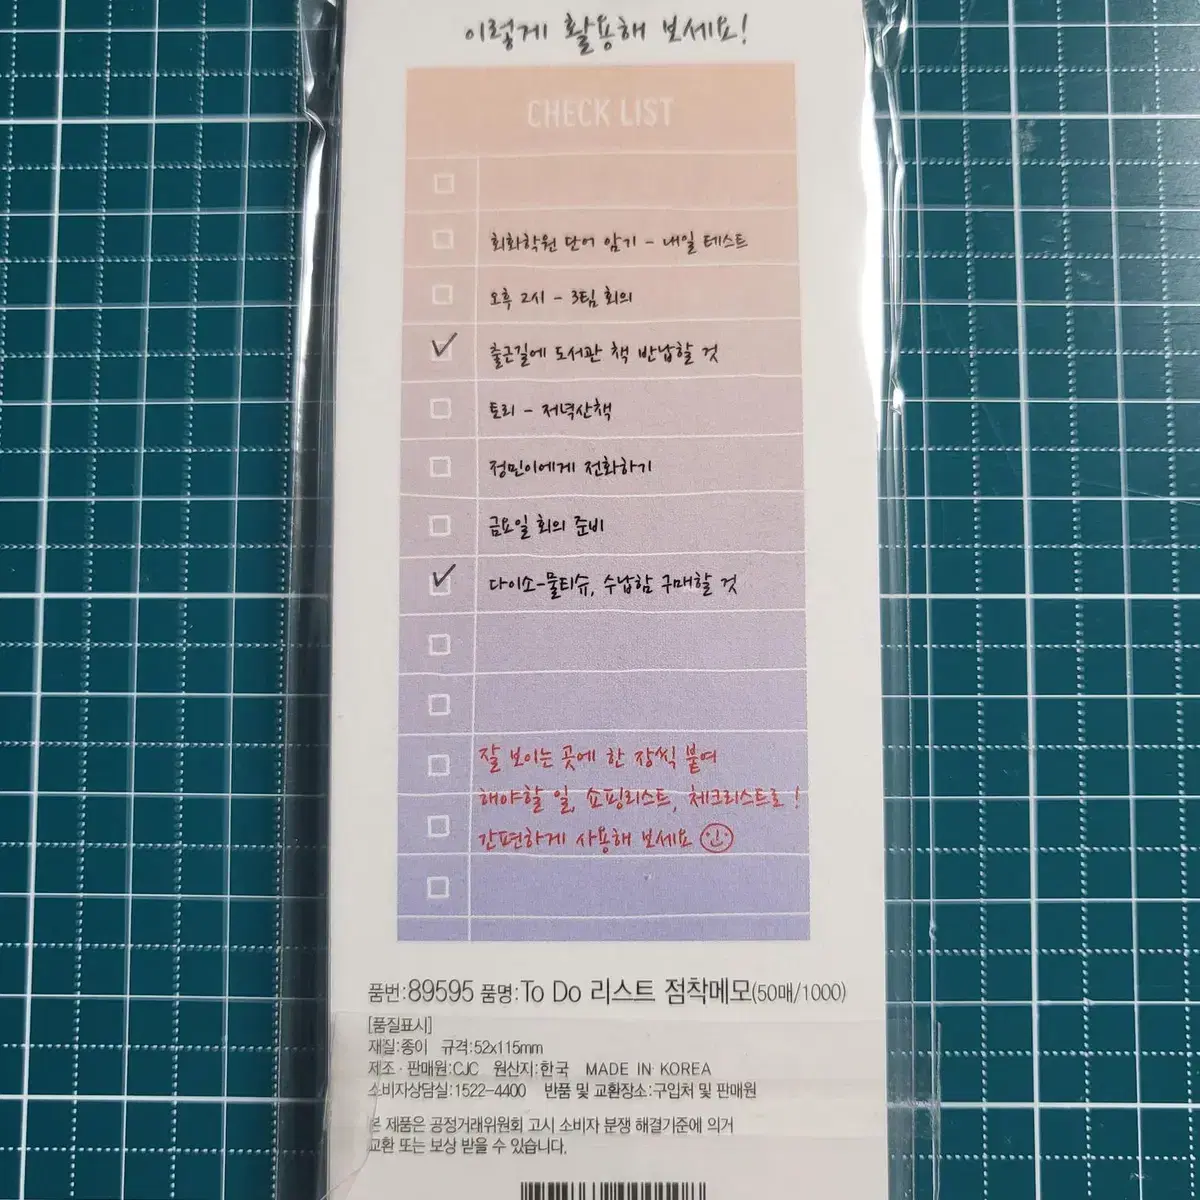 이렇게 활용해 보세요!
CHECK LIST
회화학원 단어 암기 - 내일 테스트
오후 2시 - 3팀 회의
출근길에 도서관 책 반납할 것
토리 - 저녁산책
정민이에게 전화하기
금요일 회의 준비
다이소-물티슈, 수납함 구매할 것
잘 보이는 곳에 한 장씩 붙여
해야할 일, 쇼핑리스트, 체크리스트로!
간편하게 사용해 보세요
품번:89595 품명:To Do 리스트 점착메모(50매/1000)
[품질표시]
재질:종이 규격:52x115mm
제조·판매원:CJC 원산지:한국 MADE IN KOREA
소비자상담실:1522-4400 반품 및 교환장소:구입처 및 판매원
본 제품은 공정거래위원회 고시 소비자 분쟁 해결기준에 의거
교환 또는 보상 받을 수 있습니다.